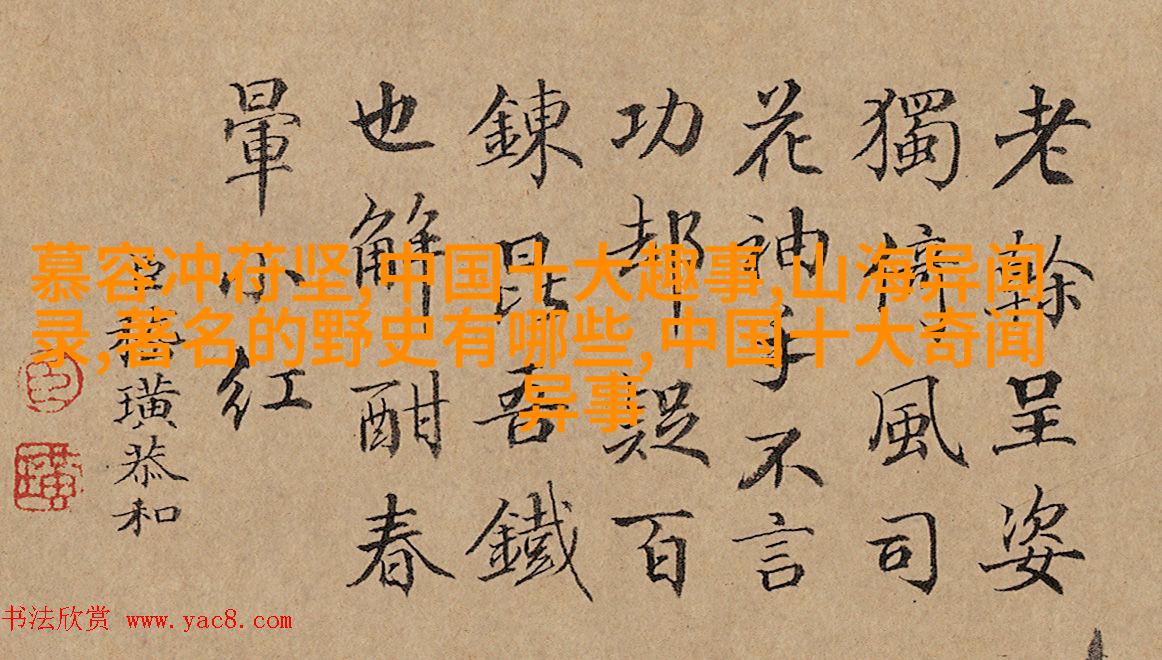 老幹呈姿
獨風司
花神手不言
功疑百
鍊昆吾鐵
也解酣春
暈小紅
臣璜恭和
慕容冲苻坚,中国十大趣事,山海异闻
录,著名的野史有哪些,中国十大奇闻
异事
书法欣赏 www.yac8.com